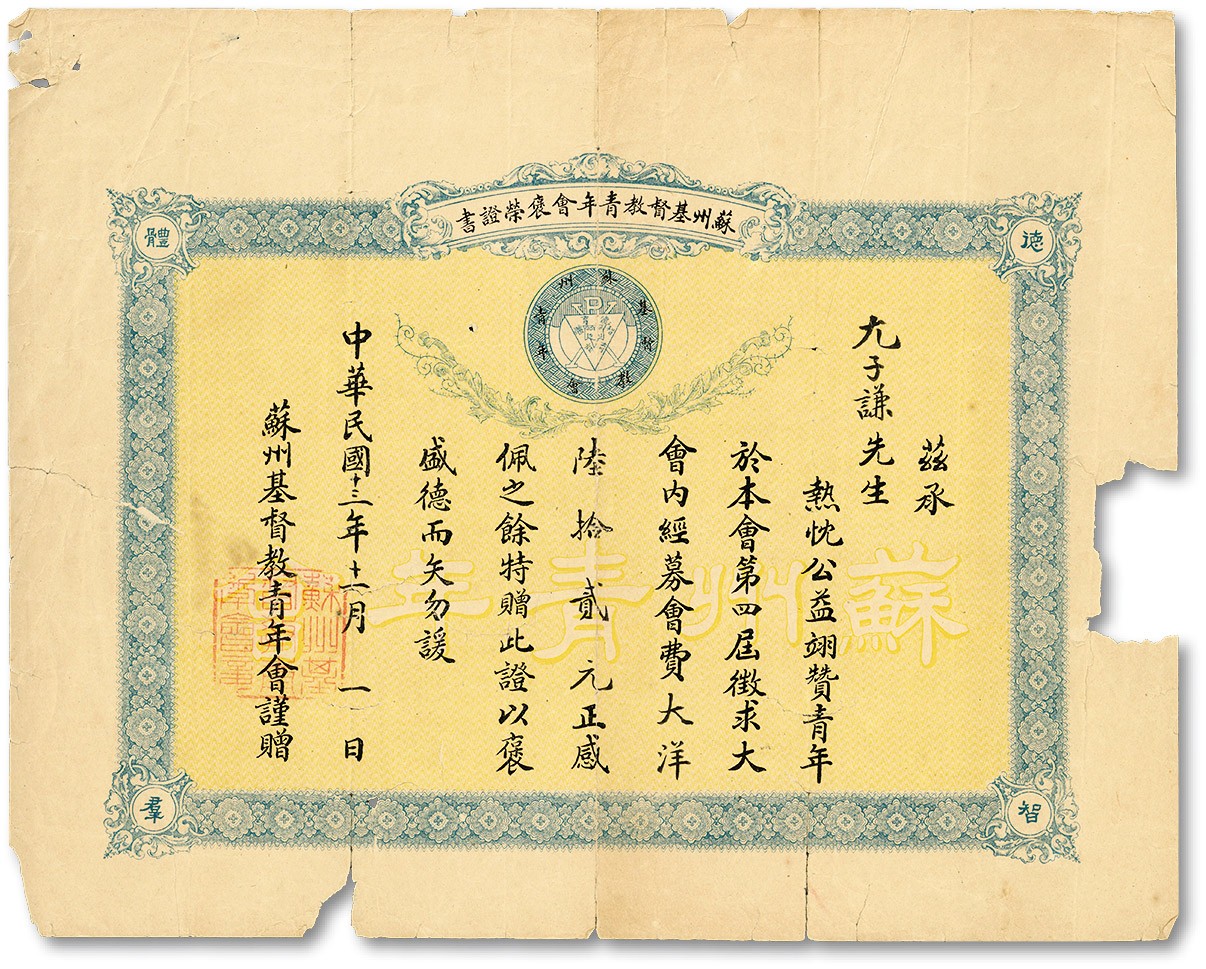 蘇州基督教青年會褒榮證書
德
體
蘇州基督教青年會
茲承
尤子謙先生
熱忱公益翊贊青年
於本會第四屆徵求大
會內經募會費大洋
陸拾貳元正感
佩之餘特贈此證以褒
盛德而矢勿諼
中華民國十三年十二月一日
蘇州基督教青年會謹贈
蘇州青年
智
羣